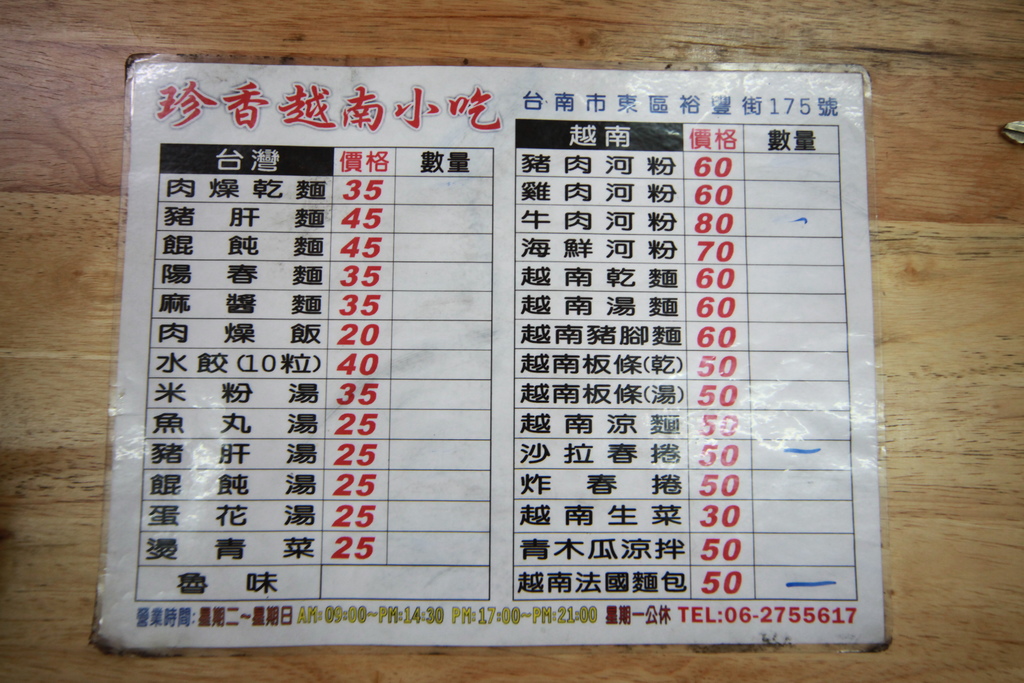 珍香越南小吃
台南市東區裕豐街175號
台灣 價格 數量
肉燥乾麵 35
豬肝麵 45
餛飩麵 45
陽春麵 35
麻醬麵 35
肉燥飯 20
水餃(10粒) 40
米粉湯 35
魚丸湯 25
豬肝湯 25
餛飩湯 25
蛋花湯 25
燙青菜 25
魯味
越南 價格 數量
豬肉河粉 60
雞肉河粉 60
牛肉河粉 80
海鮮河粉 70
越南乾麵 60
越南湯麵 60
越南豬腳麵 60
越南板條(乾) 50
越南板條(湯) 50
越南涼麵 50
沙拉春捲 50
炸春捲 50
越南生菜 30
青木瓜涼拌 50
越南法國麵包 50
營業時間:星期二~星期日 AM:09:00~PM:14:30 PM:17:00~PM:21:00 星期一公休 TEL:06-2755617